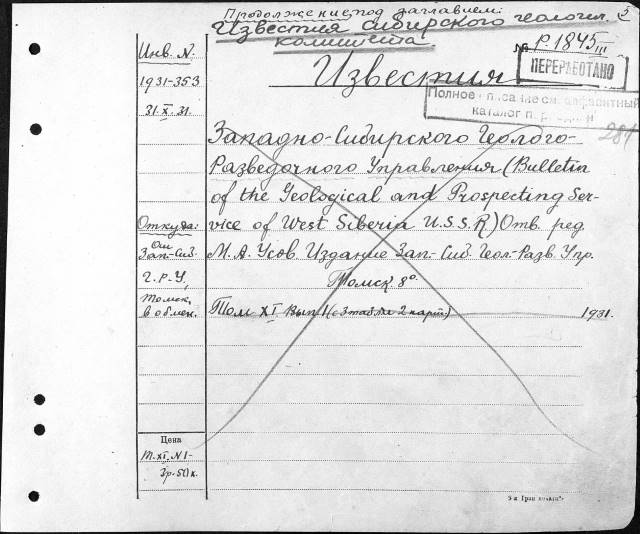 Продолжение под заглавием:
Известия сибирского геологич.
комитета.
5
№ Р 1845 III
ПЕРЕРАБОТАНО
Известия
Полное описание см. алфавитный
каталог
281
Инв. N.
1931-353
31.X.31.
Западно-Сибирского Геолого-
Разведочного Управления (Bulletin
of the Geological and Prospecting Ser-
vice of West Siberia U.S.S.R) Отв. ред.
М. А. Усов. Издание Зап.-Сиб. Геол-Разв. Упр.
Томск 8°.
Откуда:
От
Зап.-Сиб.
Г.-Р.-У,
Томск,
в обмен.
Том XI Вып. I (с 3 табл. и 2 карт.) 1931.
Цена
Т. XI. N 1-
3р.-50к.